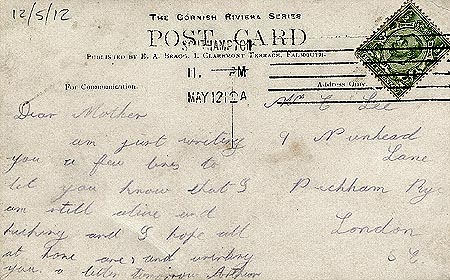 12/5/12
THE CORNISH RIVIERA SERIES
POST CARD
PUBLISHED BY E. A. BRAGG, 1, CLAREMONT TERRACE, FALMOUTH.
S'THAMPTON
11. PM
MAY 12 12
For Communication.
Address Only.
Dear Mother
am just writing
you a few lines to
let you know that I
am still alive and
kicking and I hope all
at home are and writing
you a letter tomorrow Arthur
Mr C Lee
9 Nunhead
Lane
Peckham Rye
London
S.E.